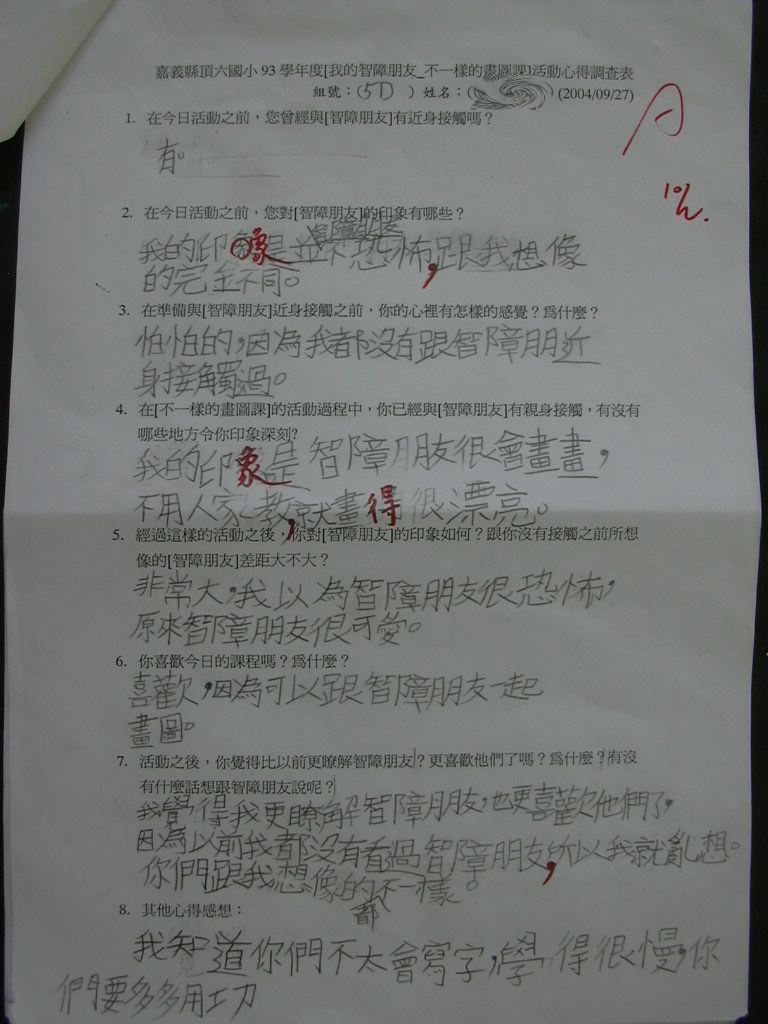 嘉義縣頂六國小93學年度[我的智障朋友_不一樣的畫圖課]活動心得調查表
組號：(5D ) 姓名：( ) (2004/09/27)
A
1. 在今日活動之前，您曾經與[智障朋友]有近身接觸嗎？
有。
2. 在今日活動之前，您對[智障朋友]的印象有哪些？
智障朋友
我的印象是並不恐怖，跟我想像
的完全不同。
3. 在準備與[智障朋友]近身接觸之前，你的心裡有怎樣的感覺？為什麼？
怕怕的，因為我都沒有跟智障朋近
身接觸過。
4. 在[不一樣的畫圖課]的活動過程中，你已經與[智障朋友]有親身接觸，有沒有
哪些地方令你印象深刻?
我的印象是智障朋友很會畫畫，
不用人家教，就畫得很漂亮。
5. 經過這樣的活動之後，你對[智障朋友]的印象如何？跟你沒有接觸之前所想
像的[智障朋友]差距大不大？
非常大，我以為智障朋友很恐怖，
原來智障朋友很可愛。
6. 你喜歡今日的課程嗎？為什麼？
喜歡，因為可以跟智障朋友一起
畫圖。
7. 活動之後，你覺得比以前更瞭解智障朋友？更喜歡他們了嗎？為什麼？有沒
有什麼話想跟智障朋友說呢？
我覺得我更瞭解智障朋友，也更喜歡他們了，
因為以前我都沒有看過智障朋友，所以我就亂想。
你們跟我想像的不一樣。
都
8. 其他心得感想：
我知道你們不太會寫字，學得很慢，你
們要多多用功